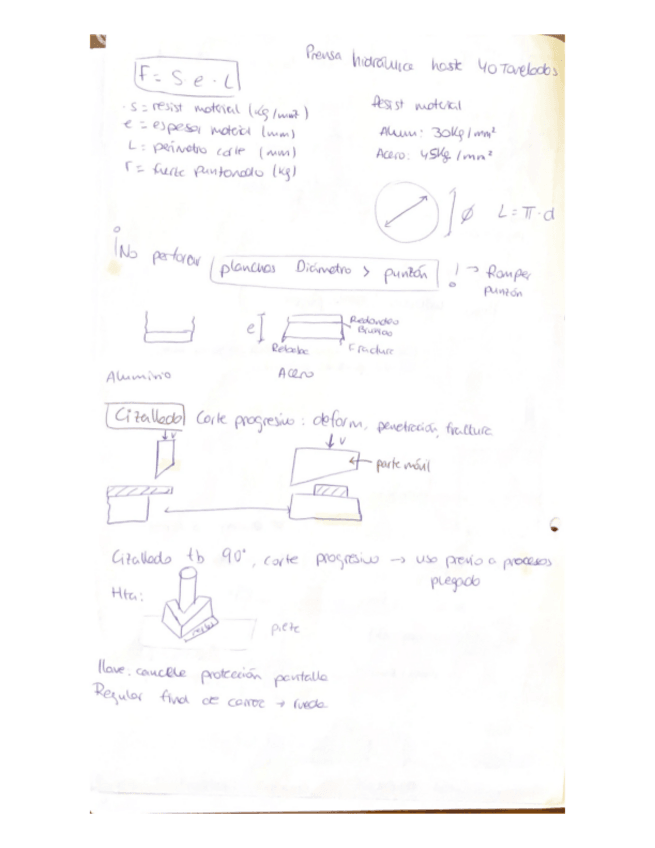 Prensa hidráulica hasta 40 Toneladas
F = S · e · L
· S = resist material (kg/mm²)
e = espesor material (mm)
L = perímetro corte (mm)
F = fuerte punzonado (kg)
Resist material
Alum: 30Kg/mm²
Acero: 45Kg/mm²
Ø L = π · d
¡No perforar planchas Diámetro > punzón! → Romper
punzón
e
Redondeo
Bruñido
Rebabas
Fractura
Aluminio
Acero
Cizallado Corte progresivo: deform, penetración, fractura
v
v
parte móvil
Cizallado tb 90°, corte progresivo → uso previo a procesos
plegado
Hta:
pieza
llave: cancela protección pantalla
Regular final de carrera → rueda